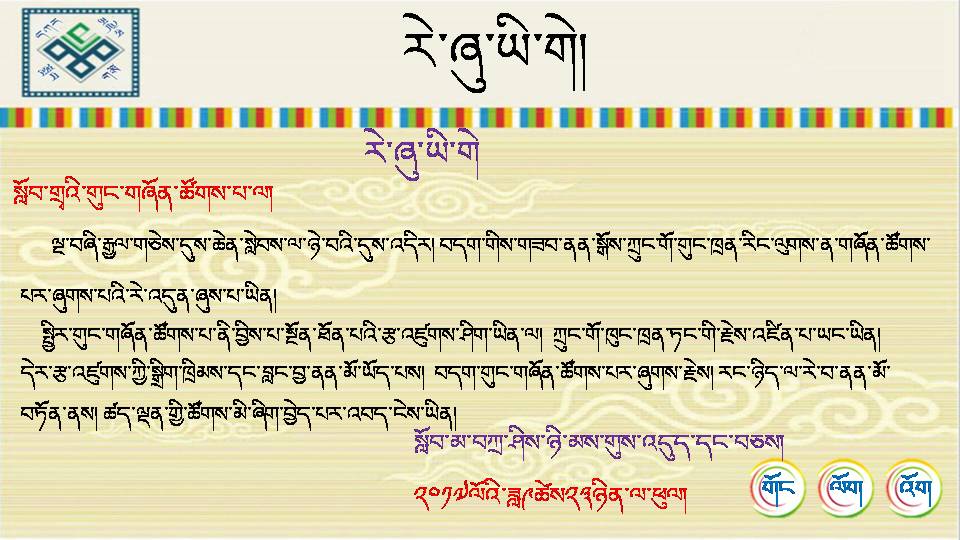 རེ་ཞུ་ཡི་གེ།
རེ་ཞུ་ཡི་གེ
སློབ་གྲྭའི་གུང་གཞོན་ཚོགས་པ་ལ།
ལྔ་བཞི་རྒྱལ་གཅེས་དུས་ཆེན་སླེབས་ལ་ཉེ་བའི་དུས་འདིར། བདག་གིས་གཟབ་ནན་སྒོས་ཀྲུང་གོ་གུང་ཁྲན་རིང་ལུགས་ན་གཞོན་ཚོགས་
པར་ཞུགས་པའི་རེ་འདུན་ཞུས་པ་ཡིན།
སྤྱིར་གུང་གཞོན་ཚོགས་པ་ནི་བྱིས་པ་སྔོན་ཐོན་པའི་རྩ་འཛུགས་ཤིག་ཡིན་ལ། ཀྲུང་གོ་ཁུང་ཁྲན་ཏང་གི་རྗེས་འཛིན་པ་ཡང་ཡིན།
དེར་རྩ་འཛུགས་ཀྱི་སྒྲིག་ཁྲིམས་དང་བླང་བྱ་ནན་མོ་ཡོད་པས། བདག་གུང་གཞོན་ཚོགས་པར་ཞུགས་རྗེས། རང་ཉིད་ལ་རེ་བ་ནན་མོ་
བཏོན་ནས། ཚད་ལྡན་གྱི་ཚོགས་མི་ཞིག་བྱེད་པར་འབད་ངེས་ཡིན།
སློབ་མ་བཀྲ་ཤིས་ཉི་མས་གུས་འདུད་དང་བཅས།
༢༠༡༧ལོའི་ཟླ༩ཚེས༢༣ཉིན་ལ་ཕུལ།
གོང ལོག འོག